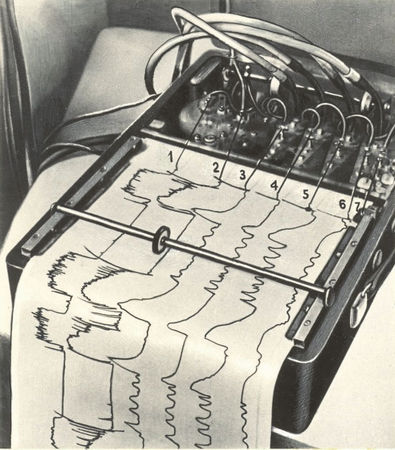 1 2 3 4 5 6 7